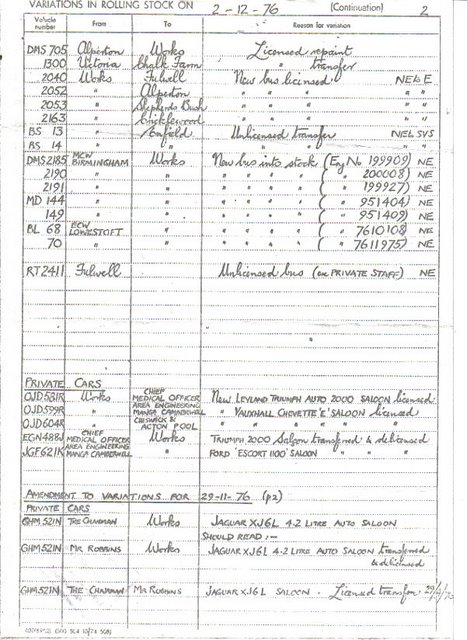 VARIATIONS IN ROLLING STOCK ON 2-12-76 (Continuation) 2
Vehicle number From To Reason for variation
DMS 705 Alperton Works Licensed repaint
1300 Victoria Chalk Farm " transfer
2040 Works Fulwell New bus licensed NEL E
2052 " Alperton " " " " "
2053 " Shepherds Bush " " " " "
2163 " Cricklewood " " " " "
BS 13 " Enfield Unlicensed transfer NEL SVS
BS 14 " " " " " "
DMS 2185 MCW BIRMINGHAM Works New bus into stock (Eng No 199909) NE
2190 " " " " " " ( " 200008) NE
2191 " " " " " " ( " 199927) NE
MD 144 " " " " " " ( " 951404) NE
149 " " " " " " ( " 951409) NE
BL 68 ECW LOWESTOFT " " " " " ( " 7610108) NE
70 " " " " " " ( " 7611975) NE
RT 2411 Fulwell Unlicensed bus (ex PRIVATE STAFF) NE
PRIVATE CARS
OJD 581R Works CHIEF MEDICAL OFFICER New LEYLAND TRIUMPH AUTO 2000 SALOON licensed
OJD 599R " AREA ENGINEERING MANGR CAMBERWELL " VAUXHALL CHEVETTE 'E' SALOON licensed
OJD 604R " CHISWICK & ACTON POOL " " " " "
EGN 488J CHIEF MEDICAL OFFICER Works TRIUMPH 2000 Saloon transferred & delicensed
JGF 621K AREA ENGINEERING MANGR CAMBERWELL " FORD 'ESCORT 1100' SALOON " " "
AMENDMENT TO VARIATIONS FOR 29-11-76 (p2)
PRIVATE CARS
GHM 521N THE CHAIRMAN Works JAGUAR XJ6L 4.2 LITRE AUTO SALOON
SHOULD READ :-
GHM 521N MR ROBBINS Works JAGUAR XJ6L 4.2 LITRE AUTO SALOON transferred
& delicensed
GHM 521N THE CHAIRMAN MR ROBBINS JAGUAR XJ6L SALOON. Licensed transfer